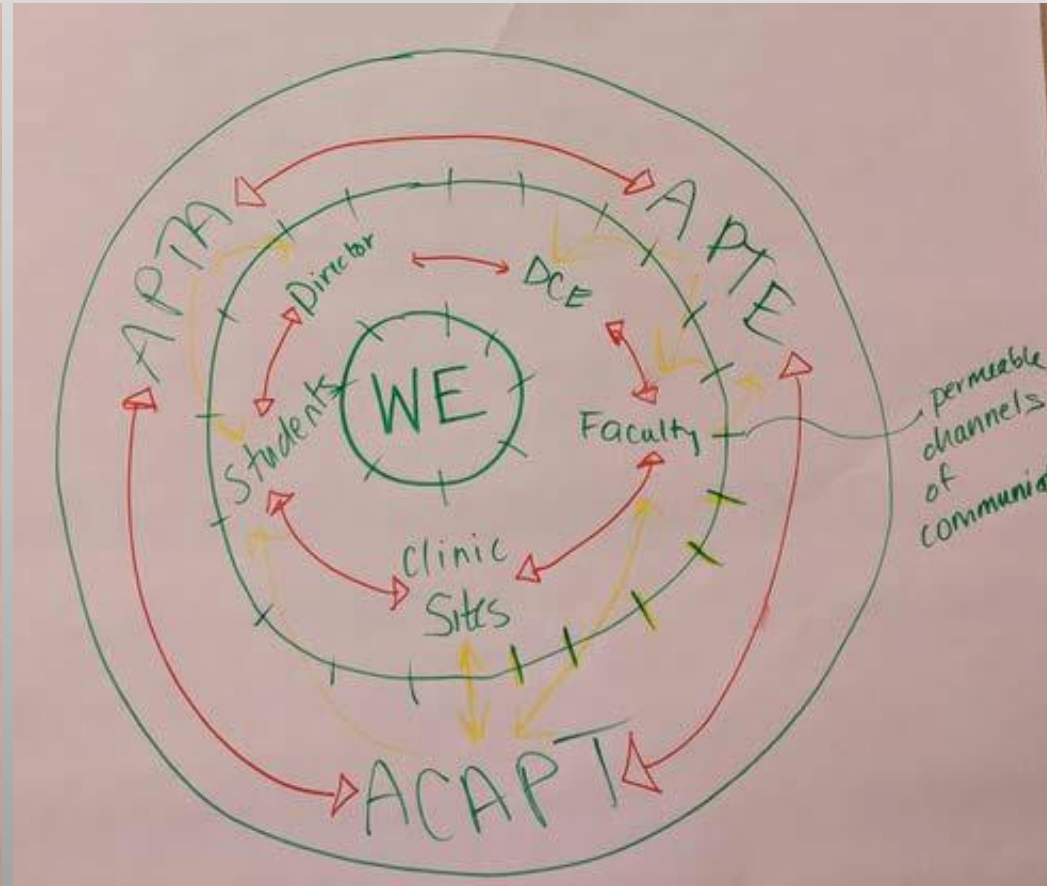 APTA
APTE
Director
DCE
Students
WE
Faculty
Clinic
Sites
ACAPT
permeable
channels
of
communi